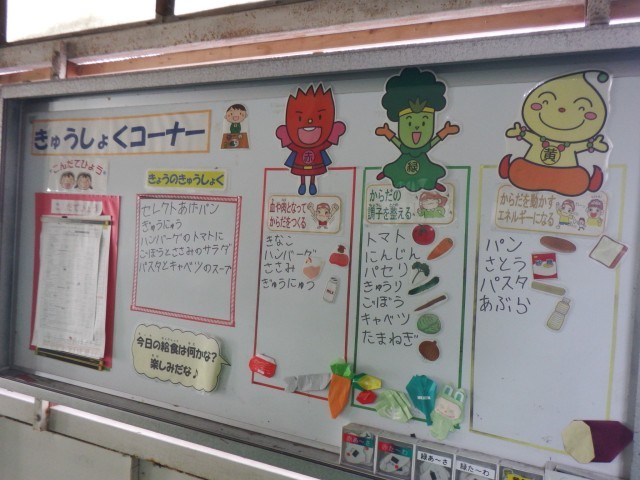 きゅうしょくコーナー
こんだてひょう
きょうのきゅうしょく
セレクトあげパン
ぎゅうにゅう
ハンバーグのトマトに
ごぼうとささみのサラダ
パスタとキャベツのスープ
今日の給食は何かな?
楽しみだな♪
赤
血や肉となって
からだをつくる
きなこ
ハンバーグ
ささみ
ぎゅうにゅう
緑
からだの
調子を整える
トマト
にんじん
パセリ
きゅうり
ごぼう
キャベツ
たまねぎ
黄
からだを動かす
エネルギーになる
パン
さとう
パスタ
あぶら
緑あ〜さ
緑た〜わ